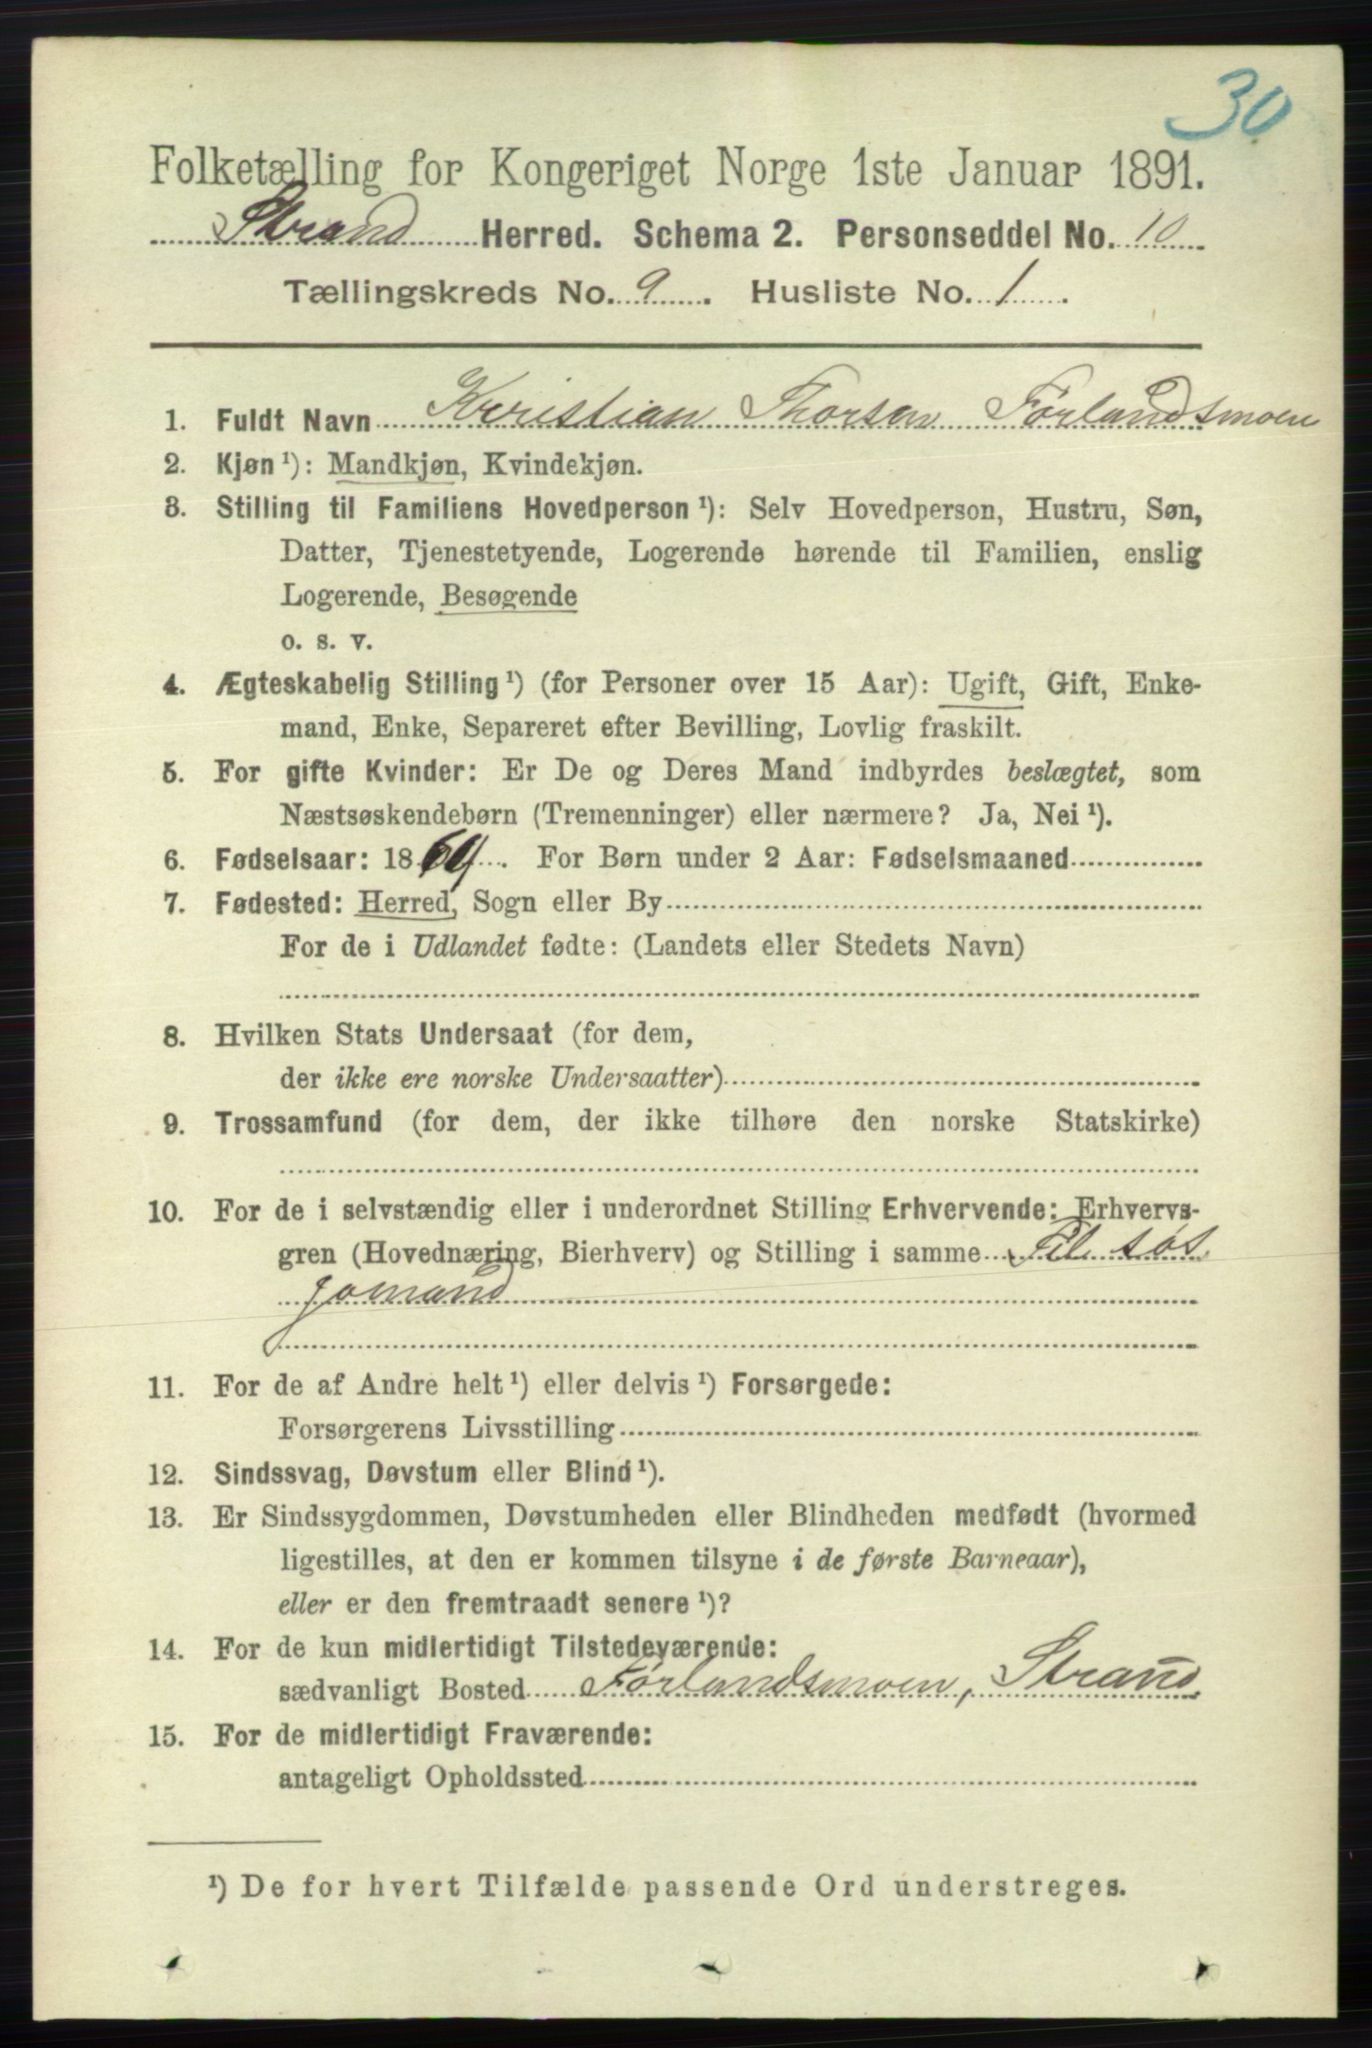 30
Folketælling for Kongeriget Norge 1ste Januar 1891.
Strand Herred. Schema 2. Personseddel No. 10
Tællingskreds No. 9. Husliste No. 1.
1. Fuldt Navn Kristian Thorsen Førlandsmoen
2. Kjøn ¹): Mandkjøn, Kvindekjøn.
3. Stilling til Familiens Hovedperson ¹): Selv Hovedperson, Hustru, Søn,
Datter, Tjenestetyende, Logerende hørende til Familien, enslig
Logerende, Besøgende
o. s. v.
4. Ægteskabelig Stilling ¹) (for Personer over 15 Aar): Ugift, Gift, Enke-
mand, Enke, Separeret efter Bevilling, Lovlig fraskilt.
5. For gifte Kvinder: Er De og Deres Mand indbyrdes beslægtet, som
Næstsøskendebørn (Tremenninger) eller nærmere? Ja, Nei ¹).
6. Fødselsaar: 1864. For Børn under 2 Aar: Fødselsmaaned
7. Fødested: Herred, Sogn eller By
For de i Udlandet fødte: (Landets eller Stedets Navn)
8. Hvilken Stats Undersaat (for dem,
der ikke ere norske Undersaatter)
9. Trossamfund (for dem, der ikke tilhøre den norske Statskirke)
10. For de i selvstændig eller i underordnet Stilling Erhvervende: Erhvervs-
gren (Hovednæring, Bierhverv) og Stilling i samme Til søs.
Jomand
11. For de af Andre helt ¹) eller delvis ¹) Forsørgede:
Forsørgerens Livsstilling
12. Sindssvag, Døvstum eller Blind ¹).
13. Er Sindssygdommen, Døvstumheden eller Blindheden medfødt (hvormed
ligestilles, at den er kommen tilsyne i de første Barneaar),
eller er den fremtraadt senere ¹)?
14. For de kun midlertidigt Tilstedeværende:
sædvanligt Bosted Førlandsmoen, Strand
15. For de midlertidigt Fraværende:
antageligt Opholdssted
¹) De for hvert Tilfælde passende Ord understreges.